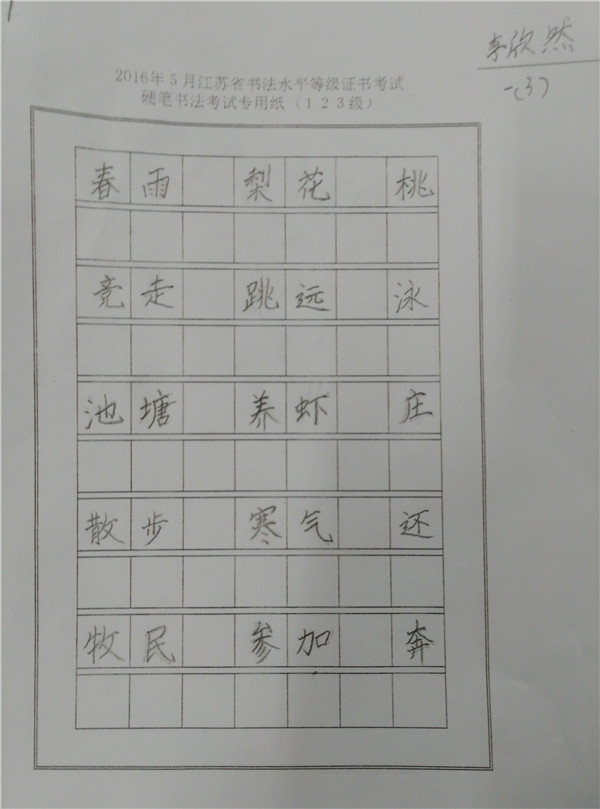 李欣然
一(3)
2016年5月江苏省书法水平等级证书考试
硬笔书法考试专用纸（1 2 3级）
春雨 梨花 桃
竞走 跳远 泳
池塘 养虾 庄
散步 寒气 还
牧民 参加 奔